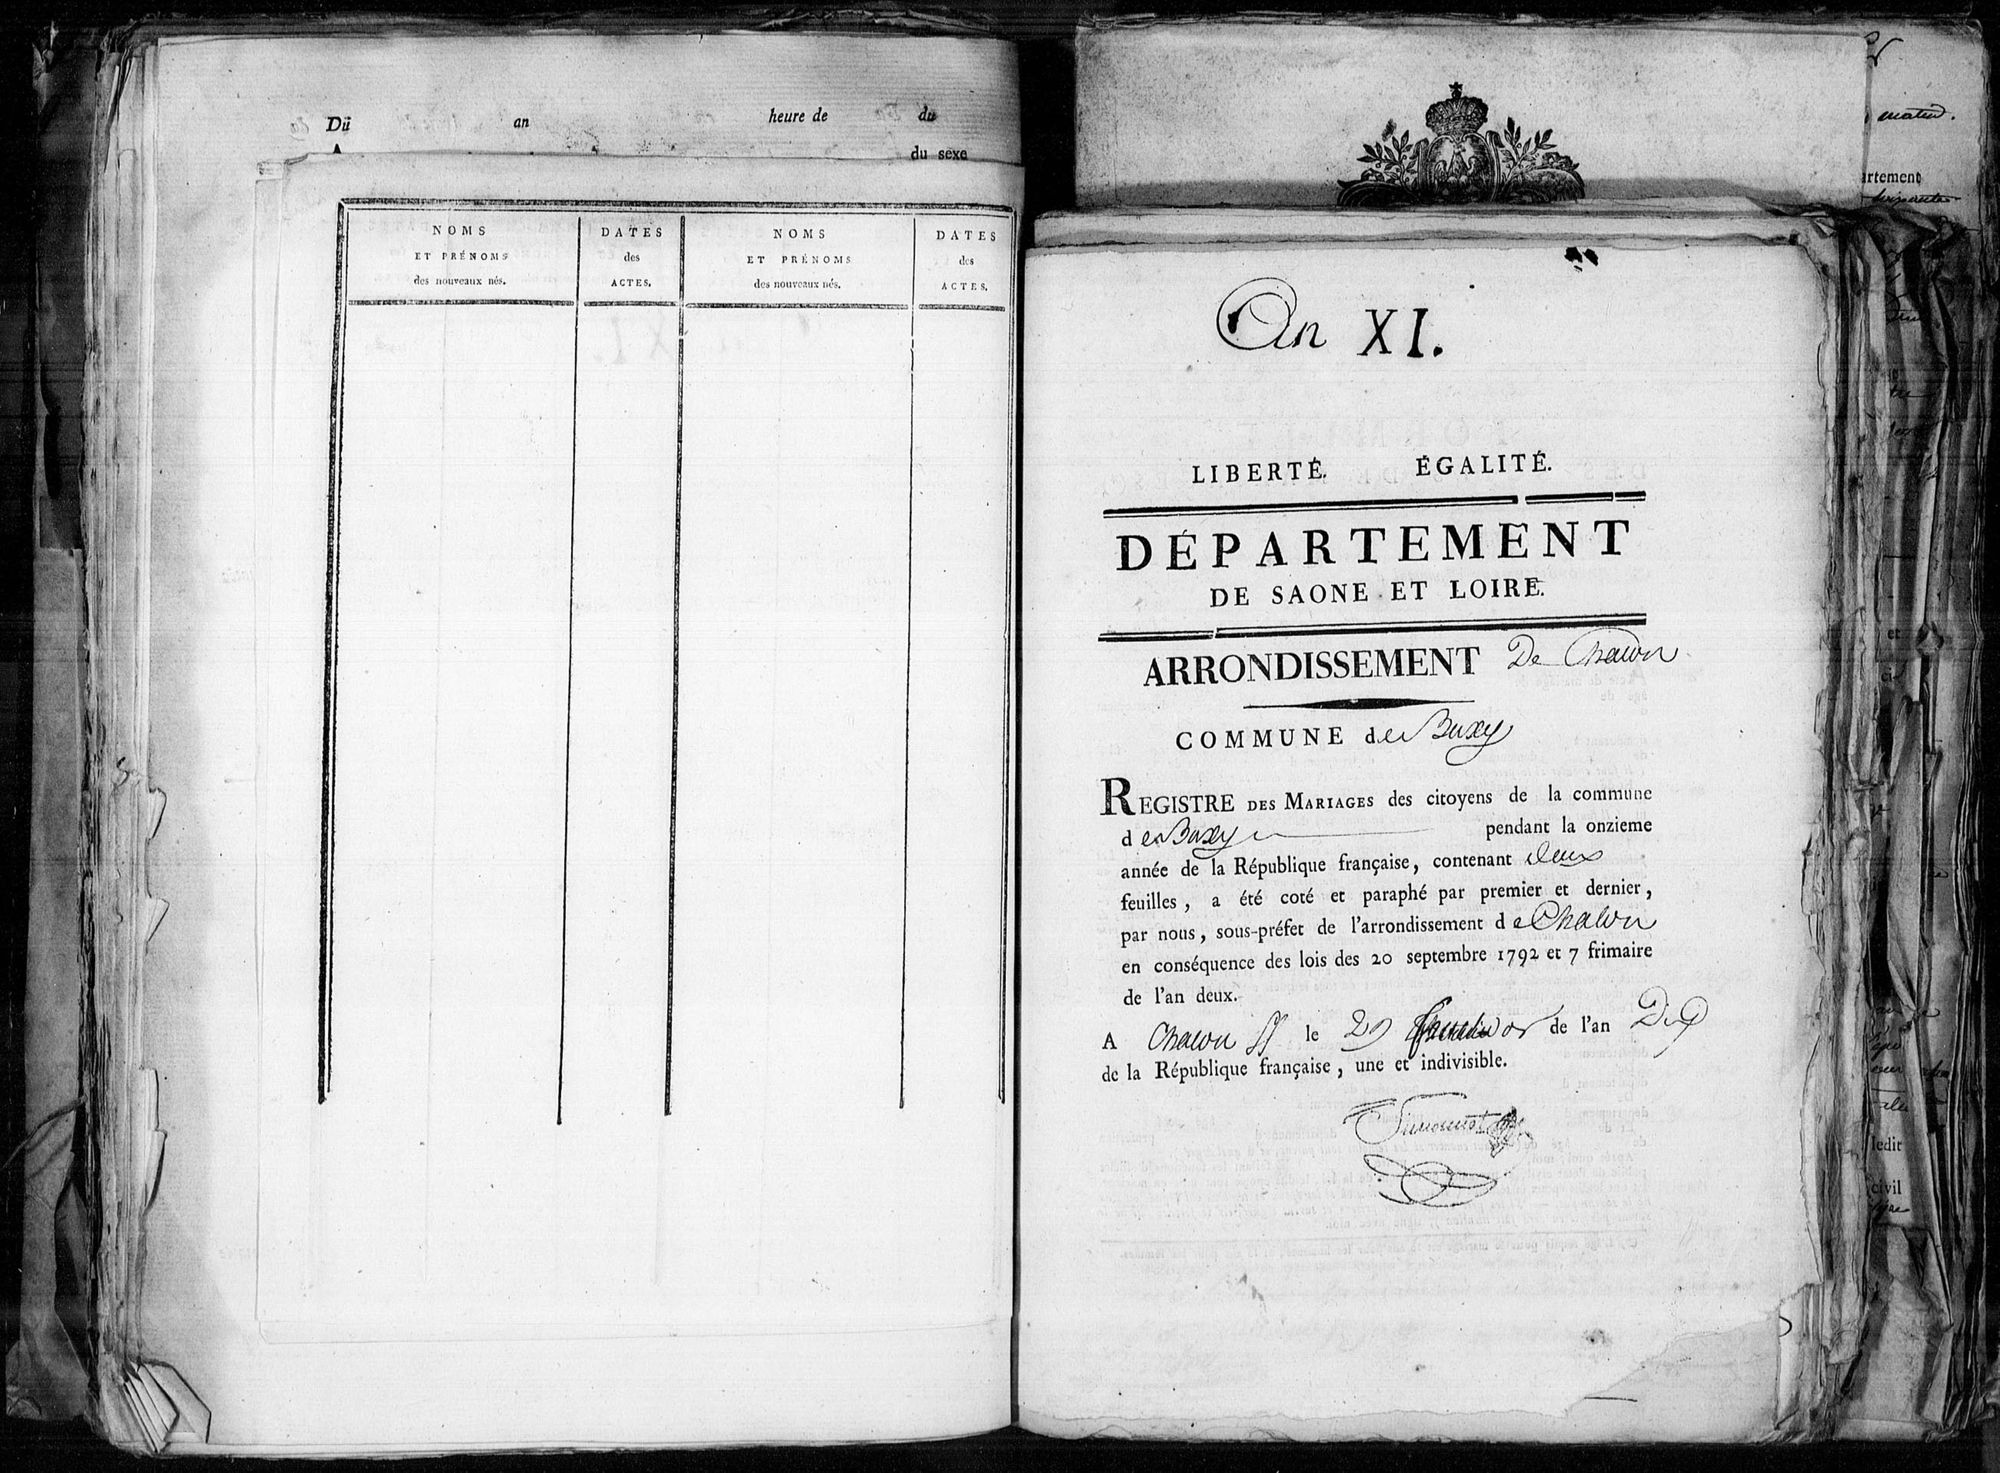 Du an heure de du
du sexe
NOMS
ET PRÉNOMS
des nouveaux nés.
DATES
des
ACTES.
NOMS
ET PRÉNOMS
des nouveaux nés.
DATES
des
ACTES.
An XI.
LIBERTÉ. ÉGALITÉ.
DÉPARTEMENT
DE SAONE ET LOIRE.
ARRONDISSEMENT De Chalon
COMMUNE de Buxy
REGISTRE DES MARIAGES des citoyens de la commune
de Buxy pendant la onzieme
année de la République française, contenant deux
feuilles, a été coté et paraphé par premier et dernier,
par nous, sous-préfet de l'arrondissement de Chalon
en conséquence des lois des 20 septembre 1792 et 7 frimaire
de l'an deux.
A Chalon le 29 de l'an Dix
de la République française, une et indivisible.
mater.
artement
ledit
civil